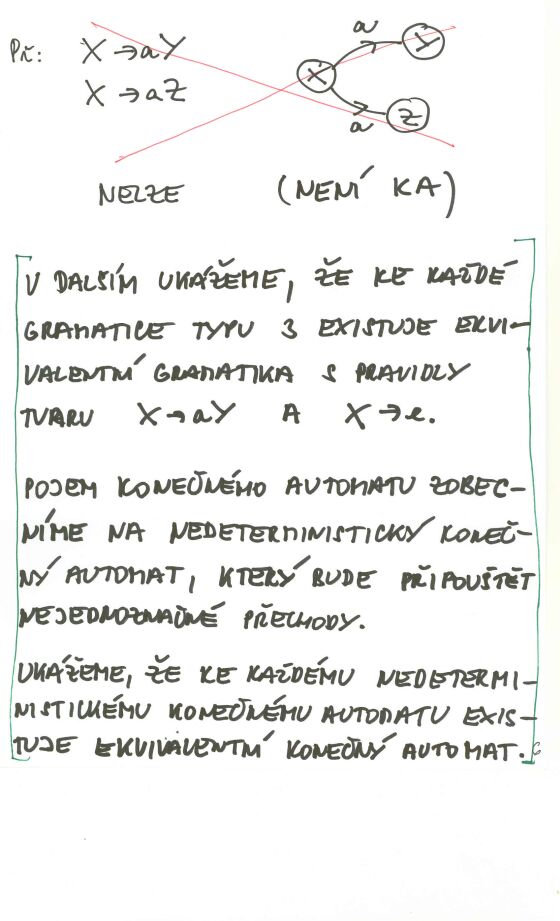 Př: X → aY
X → aZ
X a Y
a Z
NELZE (NENÍ KA)
V DALŠÍM UKÁŽEME, ŽE KE KAŽDÉ
GRAMATICE TYPU 3 EXISTUJE EKVI-
VALENTNÍ GRAMATIKA S PRAVIDLY
TVARU X → aY A X → e.
POJEM KONEČNÉHO AUTOMATU ZOBEC-
NÍME NA NEDETERMINISTICKÝ KONEČ-
NÝ AUTOMAT, KTERÝ BUDE PŘIPOUŠTĚT
NEJEDNOZNAČNÉ PŘECHODY.
UKÁŽEME, ŽE KE KAŽDÉMU NEDETERMI-
NISTICKÉMU KONEČNÉMU AUTOMATU EXIS-
TUJE EKVIVALENTNÍ KONEČNÝ AUTOMAT. 6